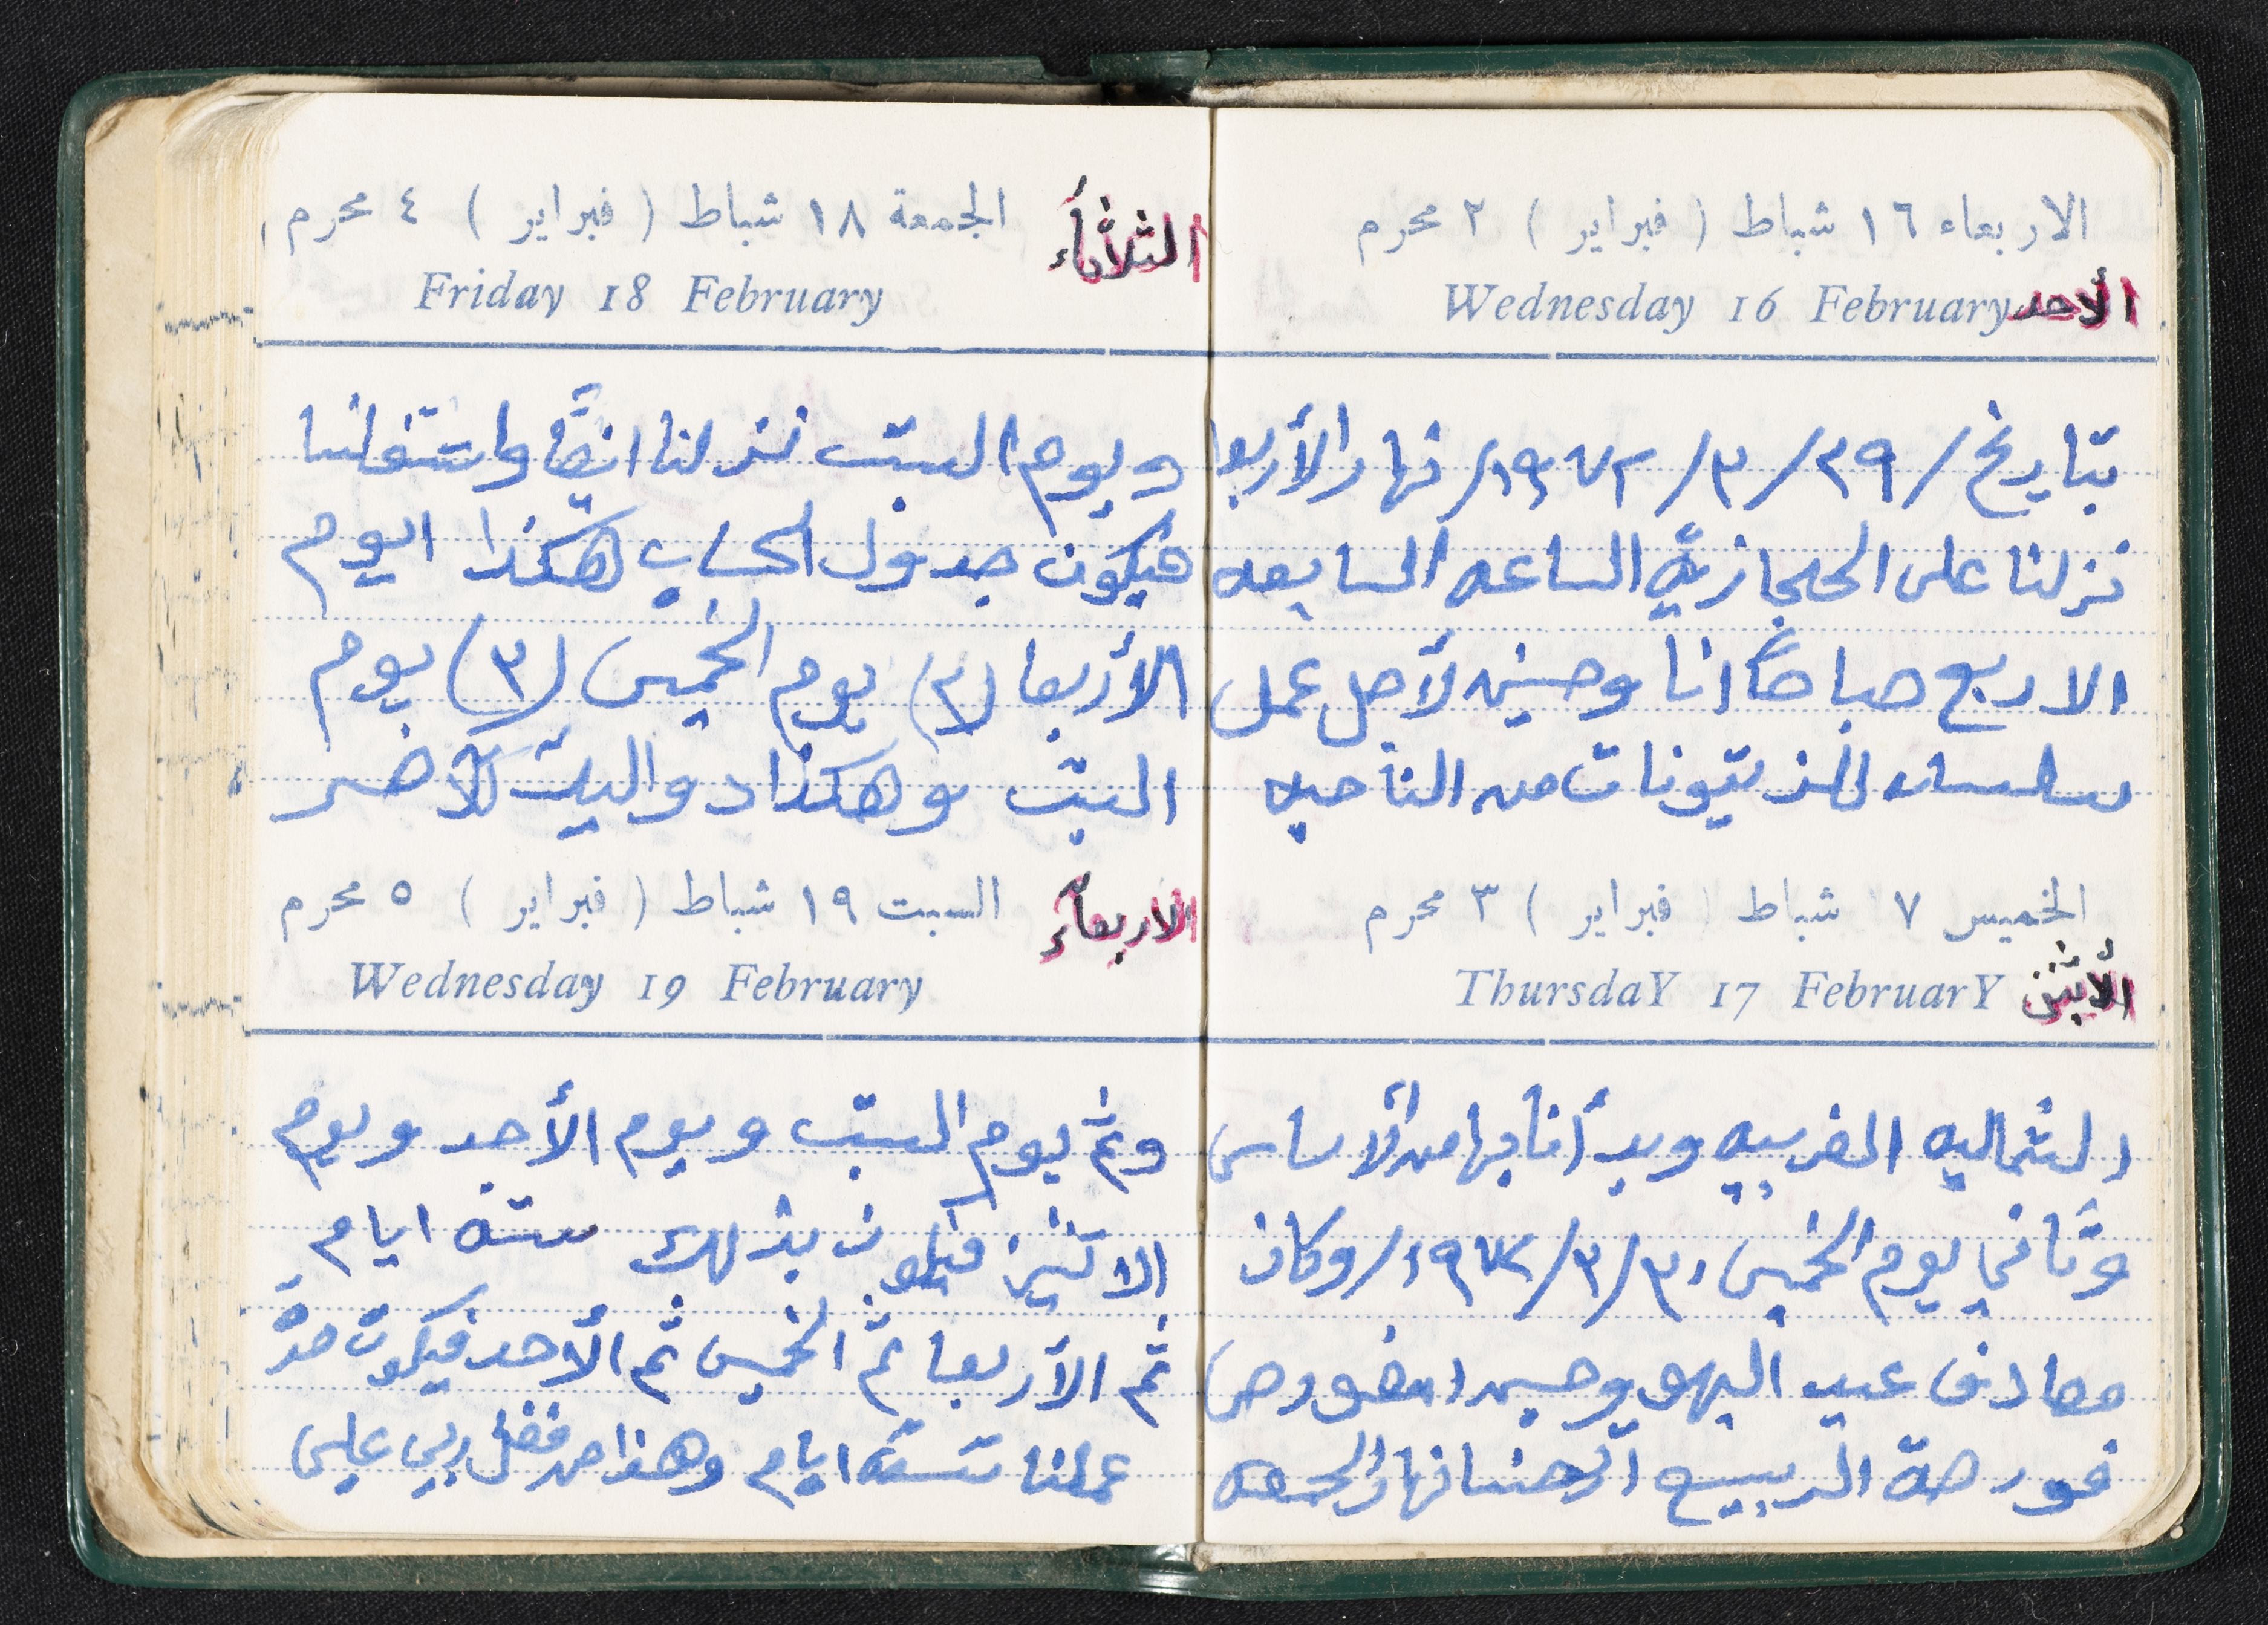 الاربعاء ١٦ شباط ( فبراير ) ٢ محرم
Wednesday 16 February الأحد
بتاريخ /٢٩/٣/١٩٧٢/ نهار الأربعا
نزلنا على الحجازية الساعه السابعه
الا ربع صباحاً انا وحسين لأجل عمل
سلسات الزيتونات من الناحيه
الخميس ٧ شباط ( فبراير ) ٣ محرم
ThursdaY 17 FebruarY الأثنين
الشماليه الغربيه وبدأنا بها من الأساس
وثاني يوم الخميس ٣٠/٣/١٩٧٢/ وكان
مصادف عيد اليهود وحسين امغورص
فورصة الربيع ارحنا نهار الجمعه
الجمعة ١٨ شباط ( فبراير ) ٤ محرم
الثلاثاء
Friday 18 February
ويوم السبت نزلنا ايضاً واشتغلنا
فيكون جدول الحساب هكذا ايوم
الأربعا (٣) يوم الخميس (٣) يوم
السبت وهكذا دواليك للآخر
السبت ١٩ شباط ( فبراير ) ٥ محرم
الاربعاء
Wednesday 19 February
وثم يوم السبت ويوم الأحد ويوم
الاثنين فيكون بذلك ستة ايام
ثم الأربعا ثم الخميس ثم الأحد فيكون مدة
عملنا تسعة ايام وهذا من فضل ربي علي